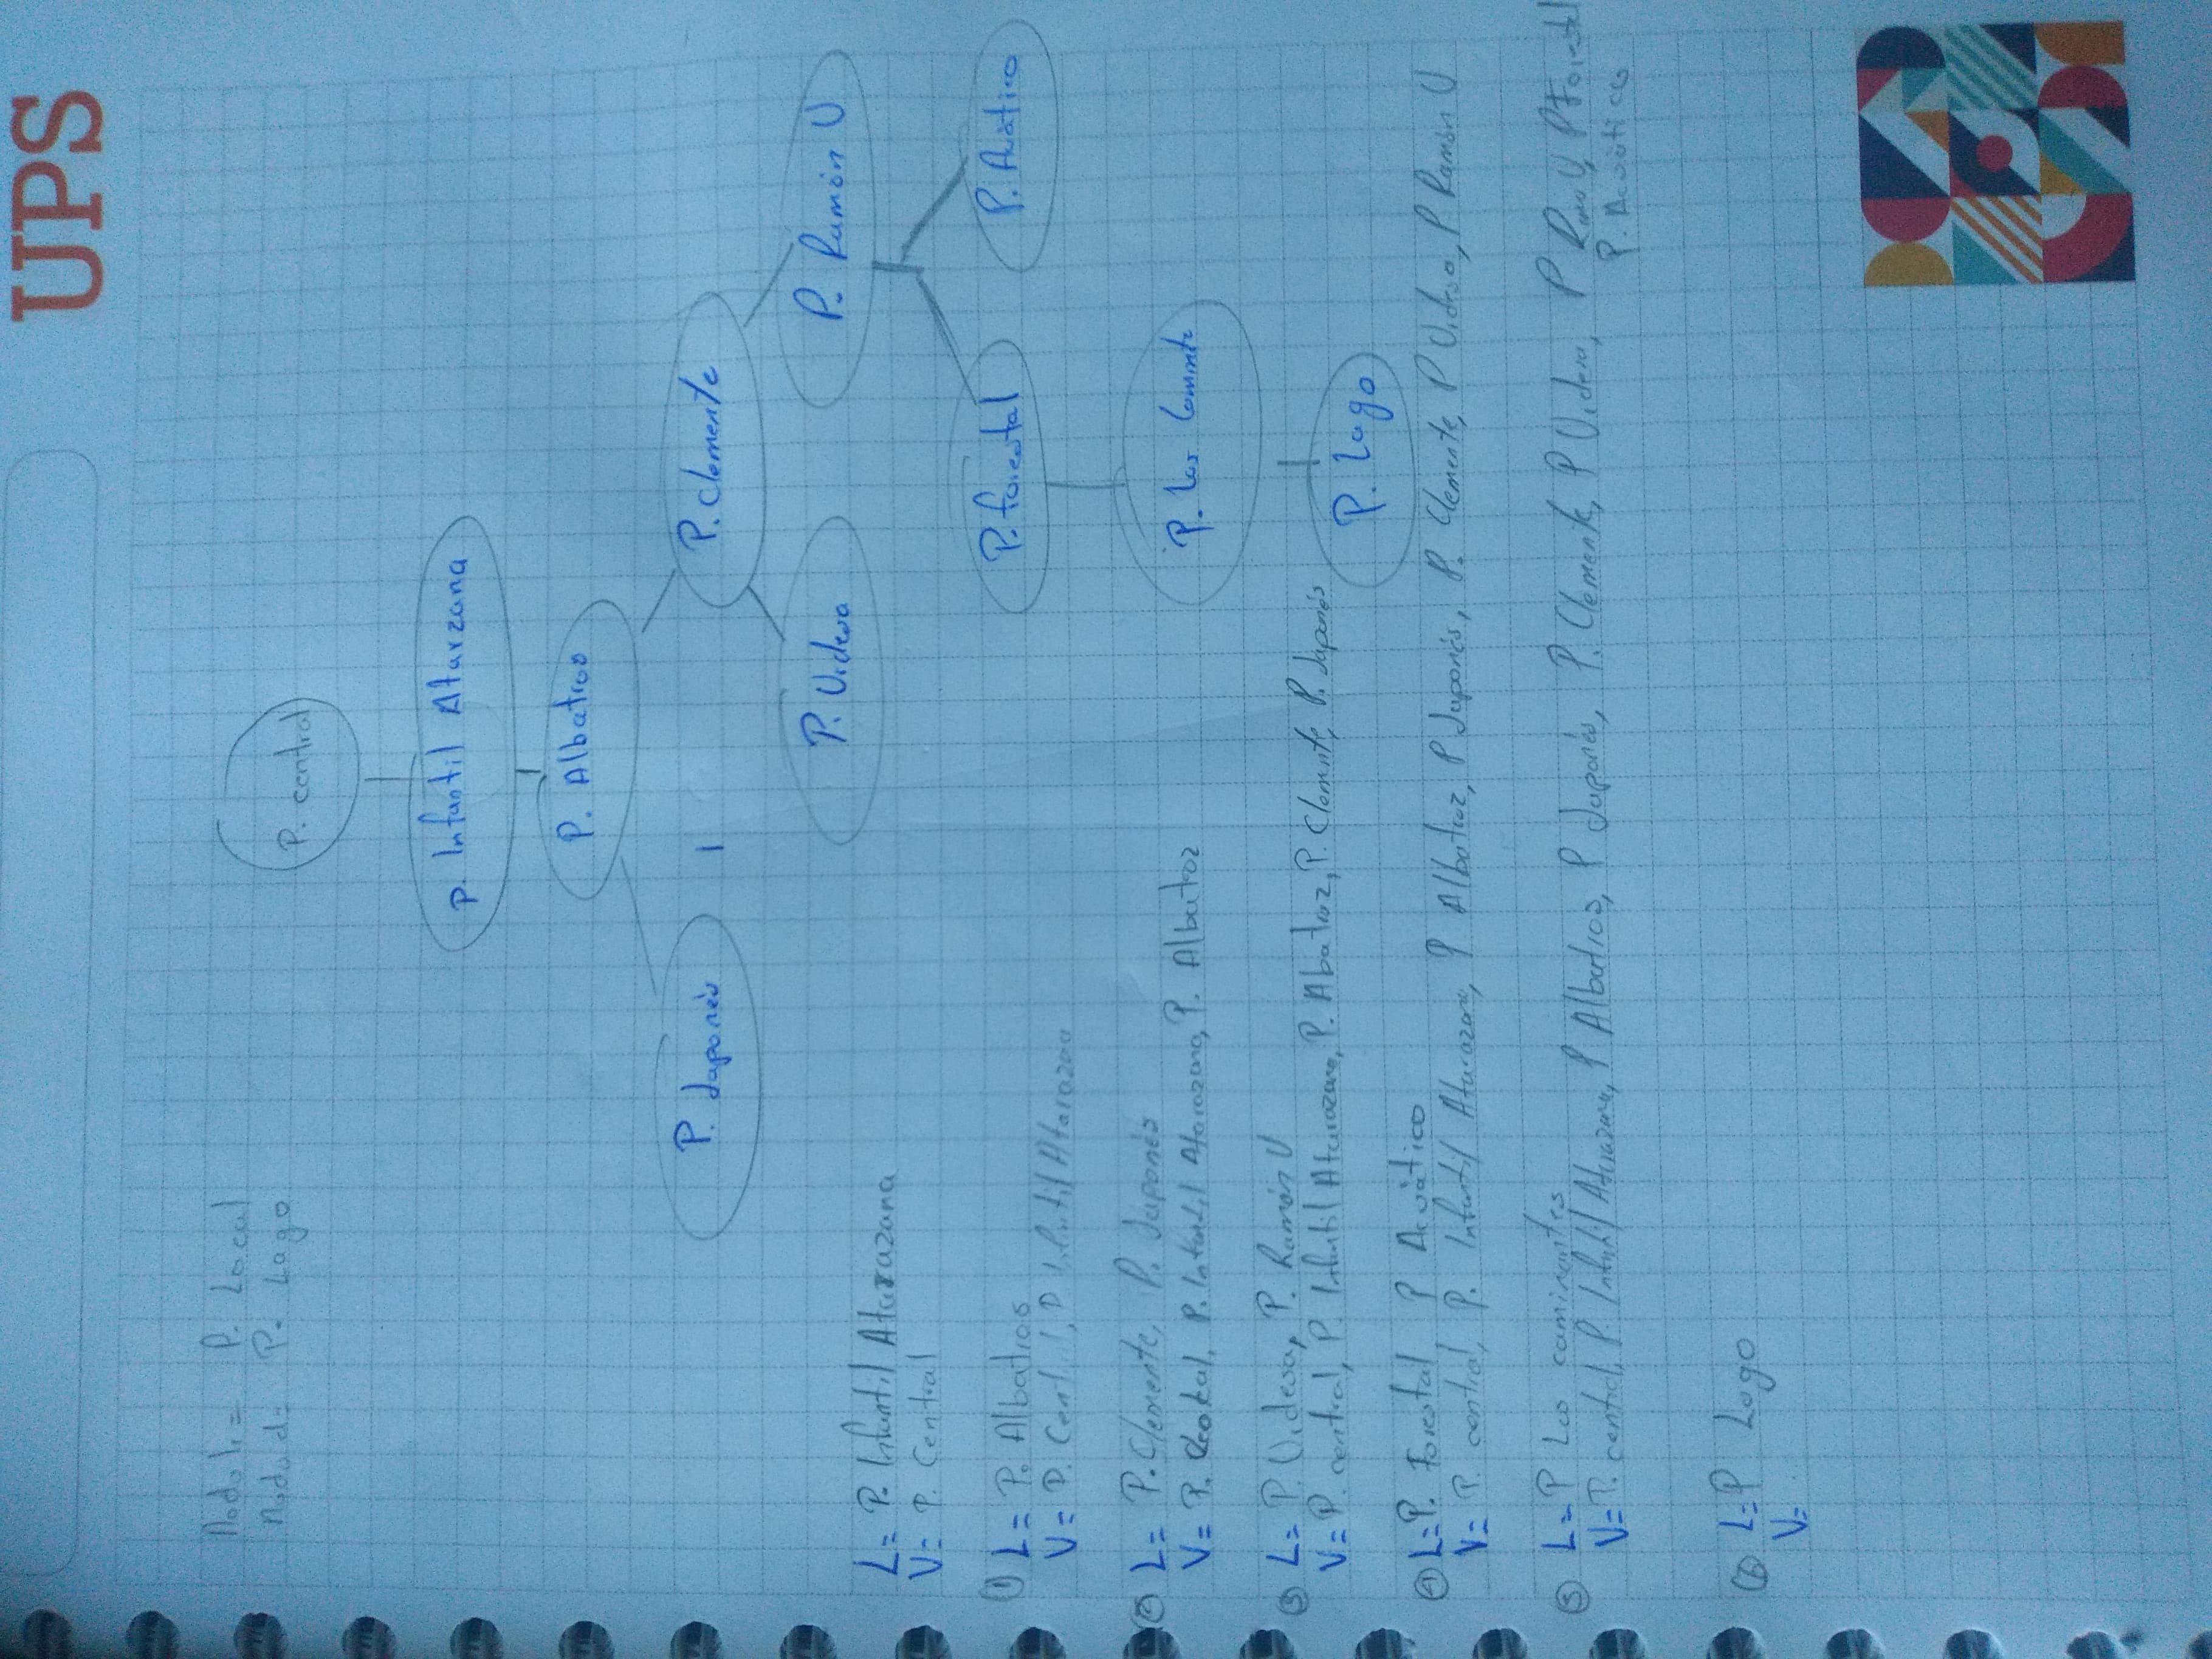 UPS
Nodo I = P. Local
Nodo d = P. Lago
P. central
P. Infantil Atarzana
P. Albatros
P. Japonés
P. Clemente
P. Videsa
P. Ramón U
P. Forestal
P. Acuático
P. Los
P. Lago
L = P. Infantil Atarazana
V = P. Central
① L = P. Albatros
V = P. Central, P Infantil
② L = P. Clemente, P. Japonés
V = P. Infantil Atarazana, P. Albatroz
③ L = P. Videsa, P. Ramón U
V = P. central, P. Infantil Atarazana, P. Abatroz, P. Clemente, P. Japonés
④ L = P. Forestal, P Acuático
V = P. central, P. Infantil Atarazana, P Albatroz, P Japonés, P. Clemente, P Videsa, P Ramón U
⑤ L = P Los caminantes
V = P. central, P Infantil Atarazana, P Albatros, P Japonés, P. Clemente, P Videsa, P U, P Forestal
P. Acuático
⑥ L = P Lago
V =